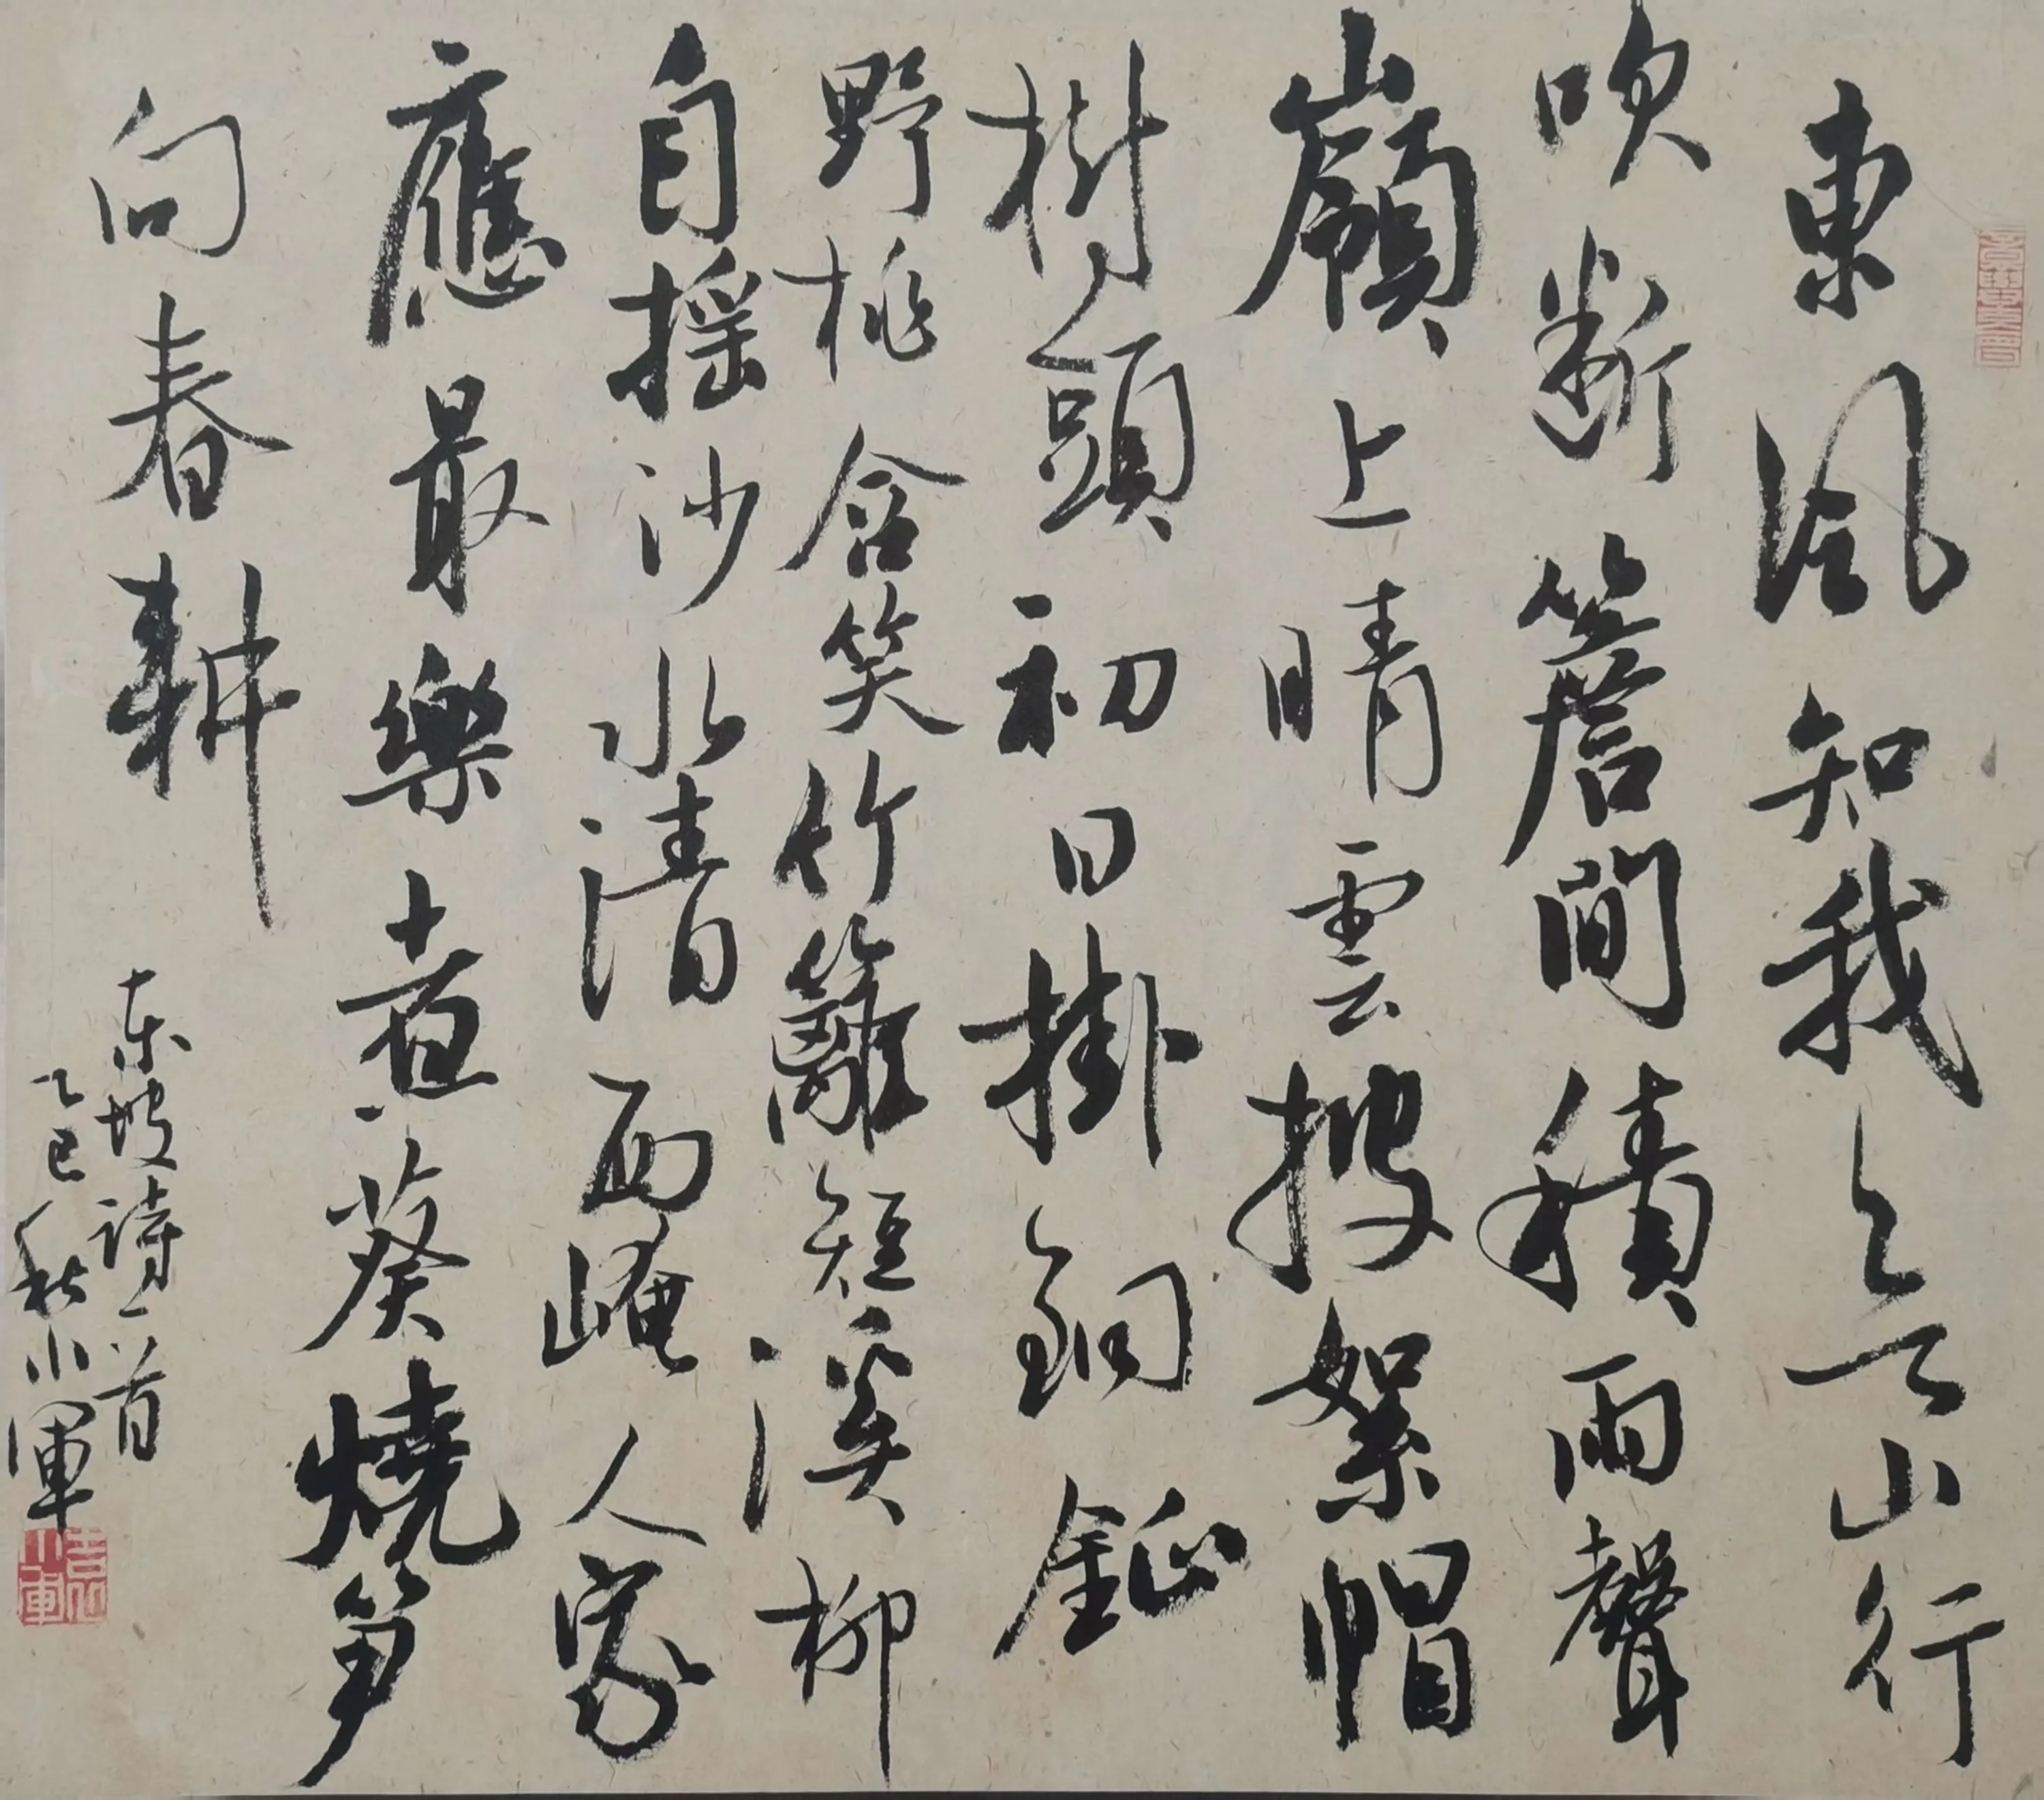 東風知我欲山行
吹断簷間積雨聲
嶺上晴雲披絮帽
樹頭初日掛銅鉦
野桃含笑竹籬短溪柳
自摇沙水清西崦人家
應最樂煮葵燒笋
向春耕
东坡詩一首
乙巳秋小軍
袁小軍